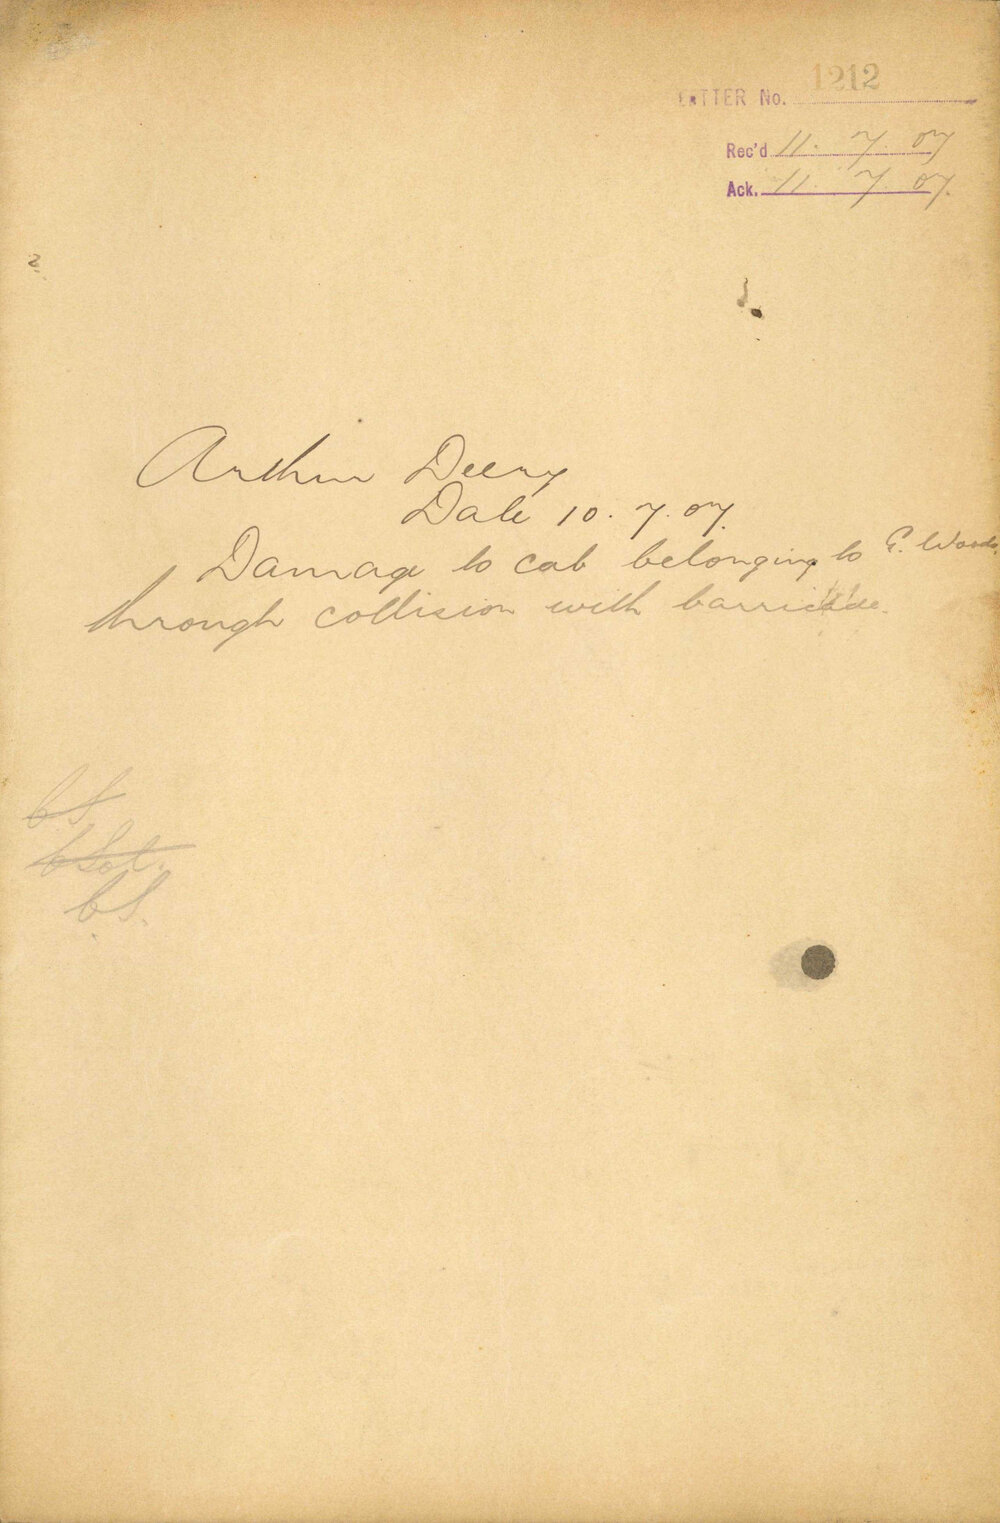 LETTER No. 1212
Rec'd 11. 7. 07
Ack. 11. 7. 07.
Arthur Deery
Date 10. 7. 07.
Damage to cab belonging to G. Woods,
through collision with barricade.